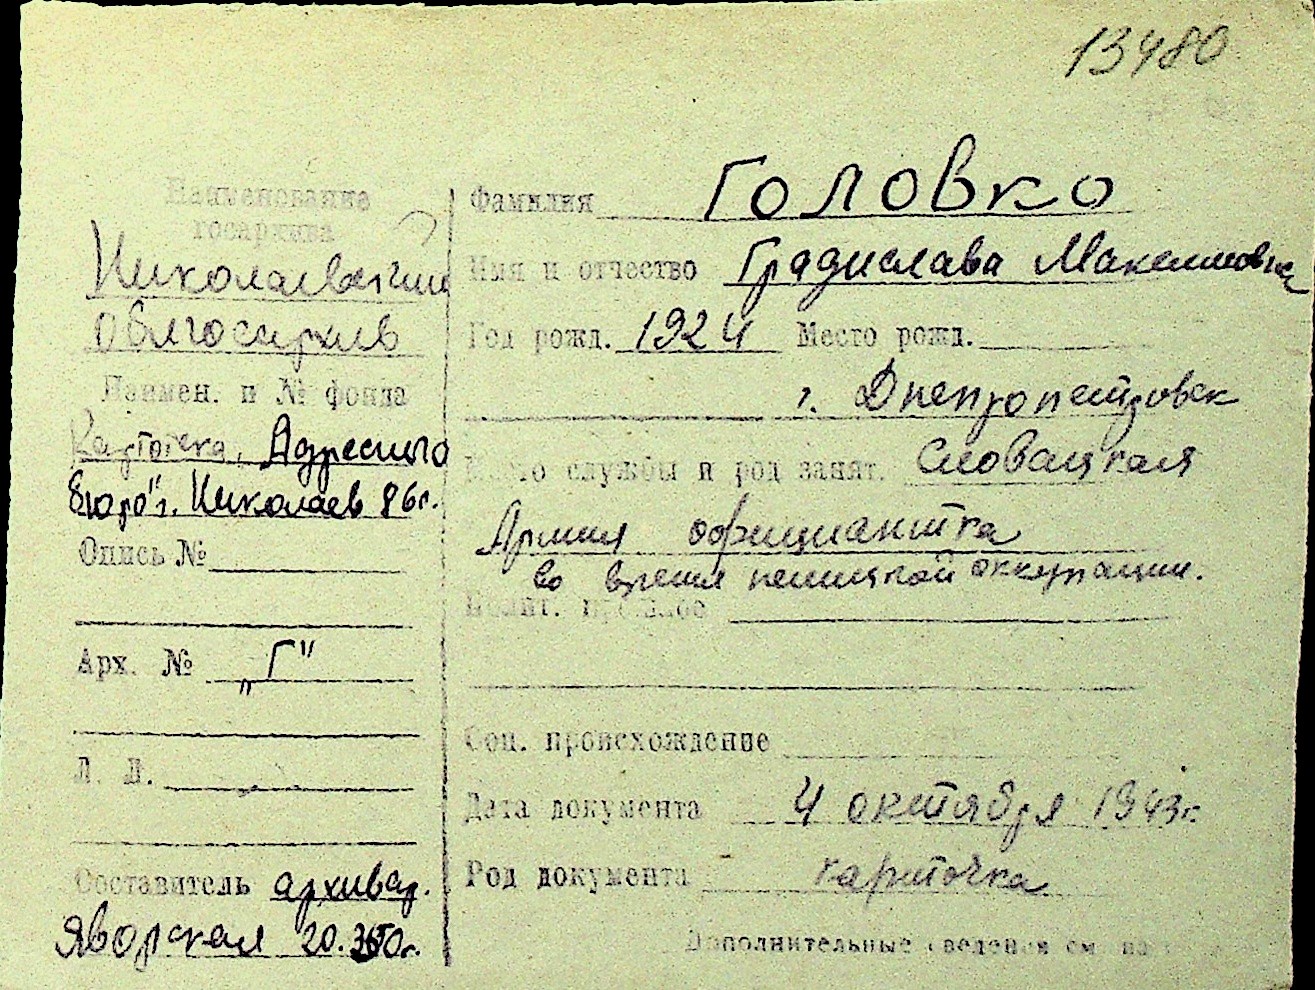 13480
Наименование
госархива
Николаевский
облгосархив
Наимен. и № фонда
Картотека „Адресного
бюро" г. Николаев 86г.
Опись №
Арх. № „Г"
Л. Л.
Составитель архивар.
Яворская 20. 50г.
Фамилия Головко
Имя и отчество Градислава Максимовна
Год рожд. 1924 Место рожд.
г. Днепропетровск
Место службы и род занят. Словацкая
Армия официантка
во время немецкой оккупации.
Полит. прошлое
Соц. происхождение
Дата документа 4 октября 1943г.
Род документа карточка
Дополнительные сведения см. на